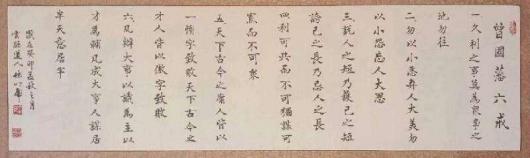 曾國藩六戒
一久利之事莫為眾爭之
地勿往
二勿以小惡棄人大美勿
以小怨忘人大恩
三說人之短乃護己之短
誇己之長乃忌人之長
四利可共而不可獨謀可
寡而不可眾
五天下古今之庸人皆以
一惰字致敗天下古今之
才人皆以傲字致敗
六凡辦大事以識為主以
才為輔凡成大事人謀居
半天意居半
歲在癸卯孟秋之月